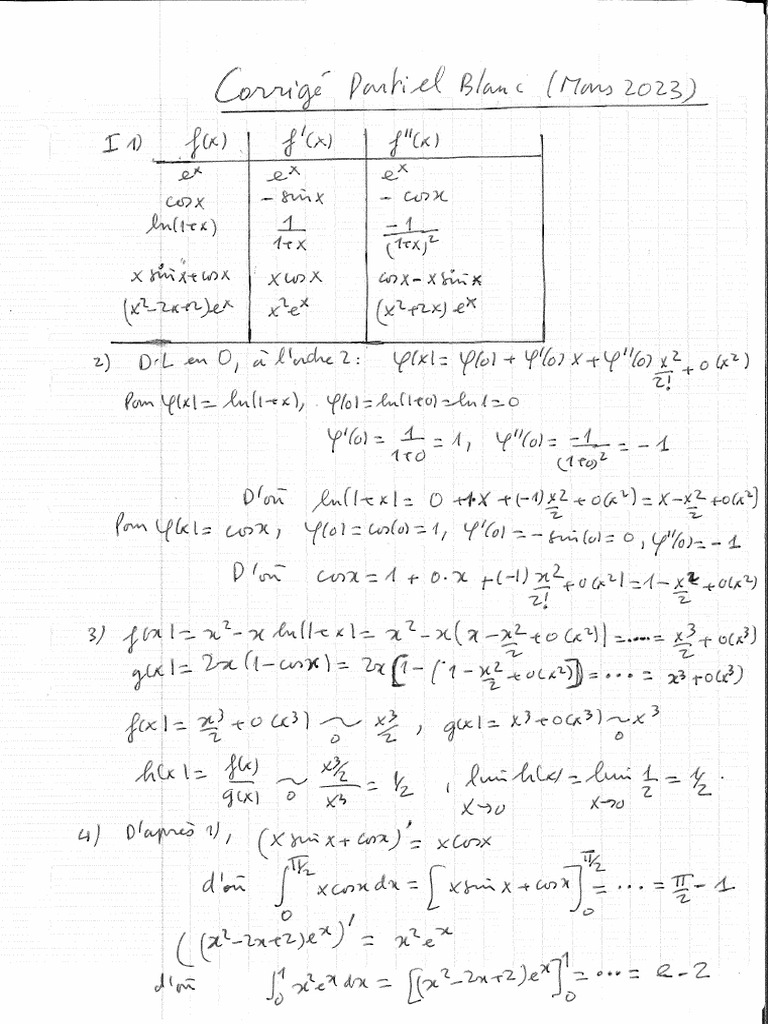 Corrigé Partiel Blanc (Mars 2023)
I 1) f(x) f'(x) f''(x)
eˣ eˣ eˣ
cosx - sinx - cosx
ln(1+x) 1/(1+x) -1/(1+x)²
x sinx+cosx x cosx cosx - x sinx
(x²-2x+2)eˣ x²eˣ (x²+2x)eˣ
2) D.L en 0, à l'ordre 2: φ(x) = φ(0) + φ'(0) x + φ''(0) x²/2! + o(x²)
Pour φ(x) = ln(1+x), φ(0) = ln(1+0) = ln 1 = 0
φ'(0) = 1/(1+0) = 1, φ''(0) = -1/(1+0)² = -1
D'où ln(1+x) = 0 + 1·x + (-1) x²/2 + o(x²) = x - x²/2 + o(x²)
Pour φ(x) = cosx, φ(0) = cos(0) = 1, φ'(0) = - sin(0) = 0, φ''(0) = -1
D'où cosx = 1 + 0·x + (-1) x²/2! + o(x²) = 1 - x²/2 + o(x²)
3) f(x) = x² - x ln(1+x) = x² - x(x - x²/2 + o(x²)) = ..... = x³/2 + o(x³)
g(x) = 2x(1 - cosx) = 2x[1 - (1 - x²/2 + o(x²))] = ... = x³ + o(x³)
f(x) = x³/2 + o(x³) ~₀ x³/2, g(x) = x³ + o(x³) ~₀ x³
h(x) = f(x)/g(x) ~₀ (x³/2)/x³ = 1/2, lim h(x) x→0 = lim x→0 1/2 = 1/2.
4) D'après 1), (x sinx + cosx)' = x cosx
d'où ∫₀^(π/2) x cosx dx = [x sinx + cosx]₀^(π/2) = ... = π/2 - 1
((x²-2x+2)eˣ)' = x²eˣ
d'où ∫₀¹ x²eˣ dx = [(x²-2x+2)eˣ]₀¹ = ... = e-2